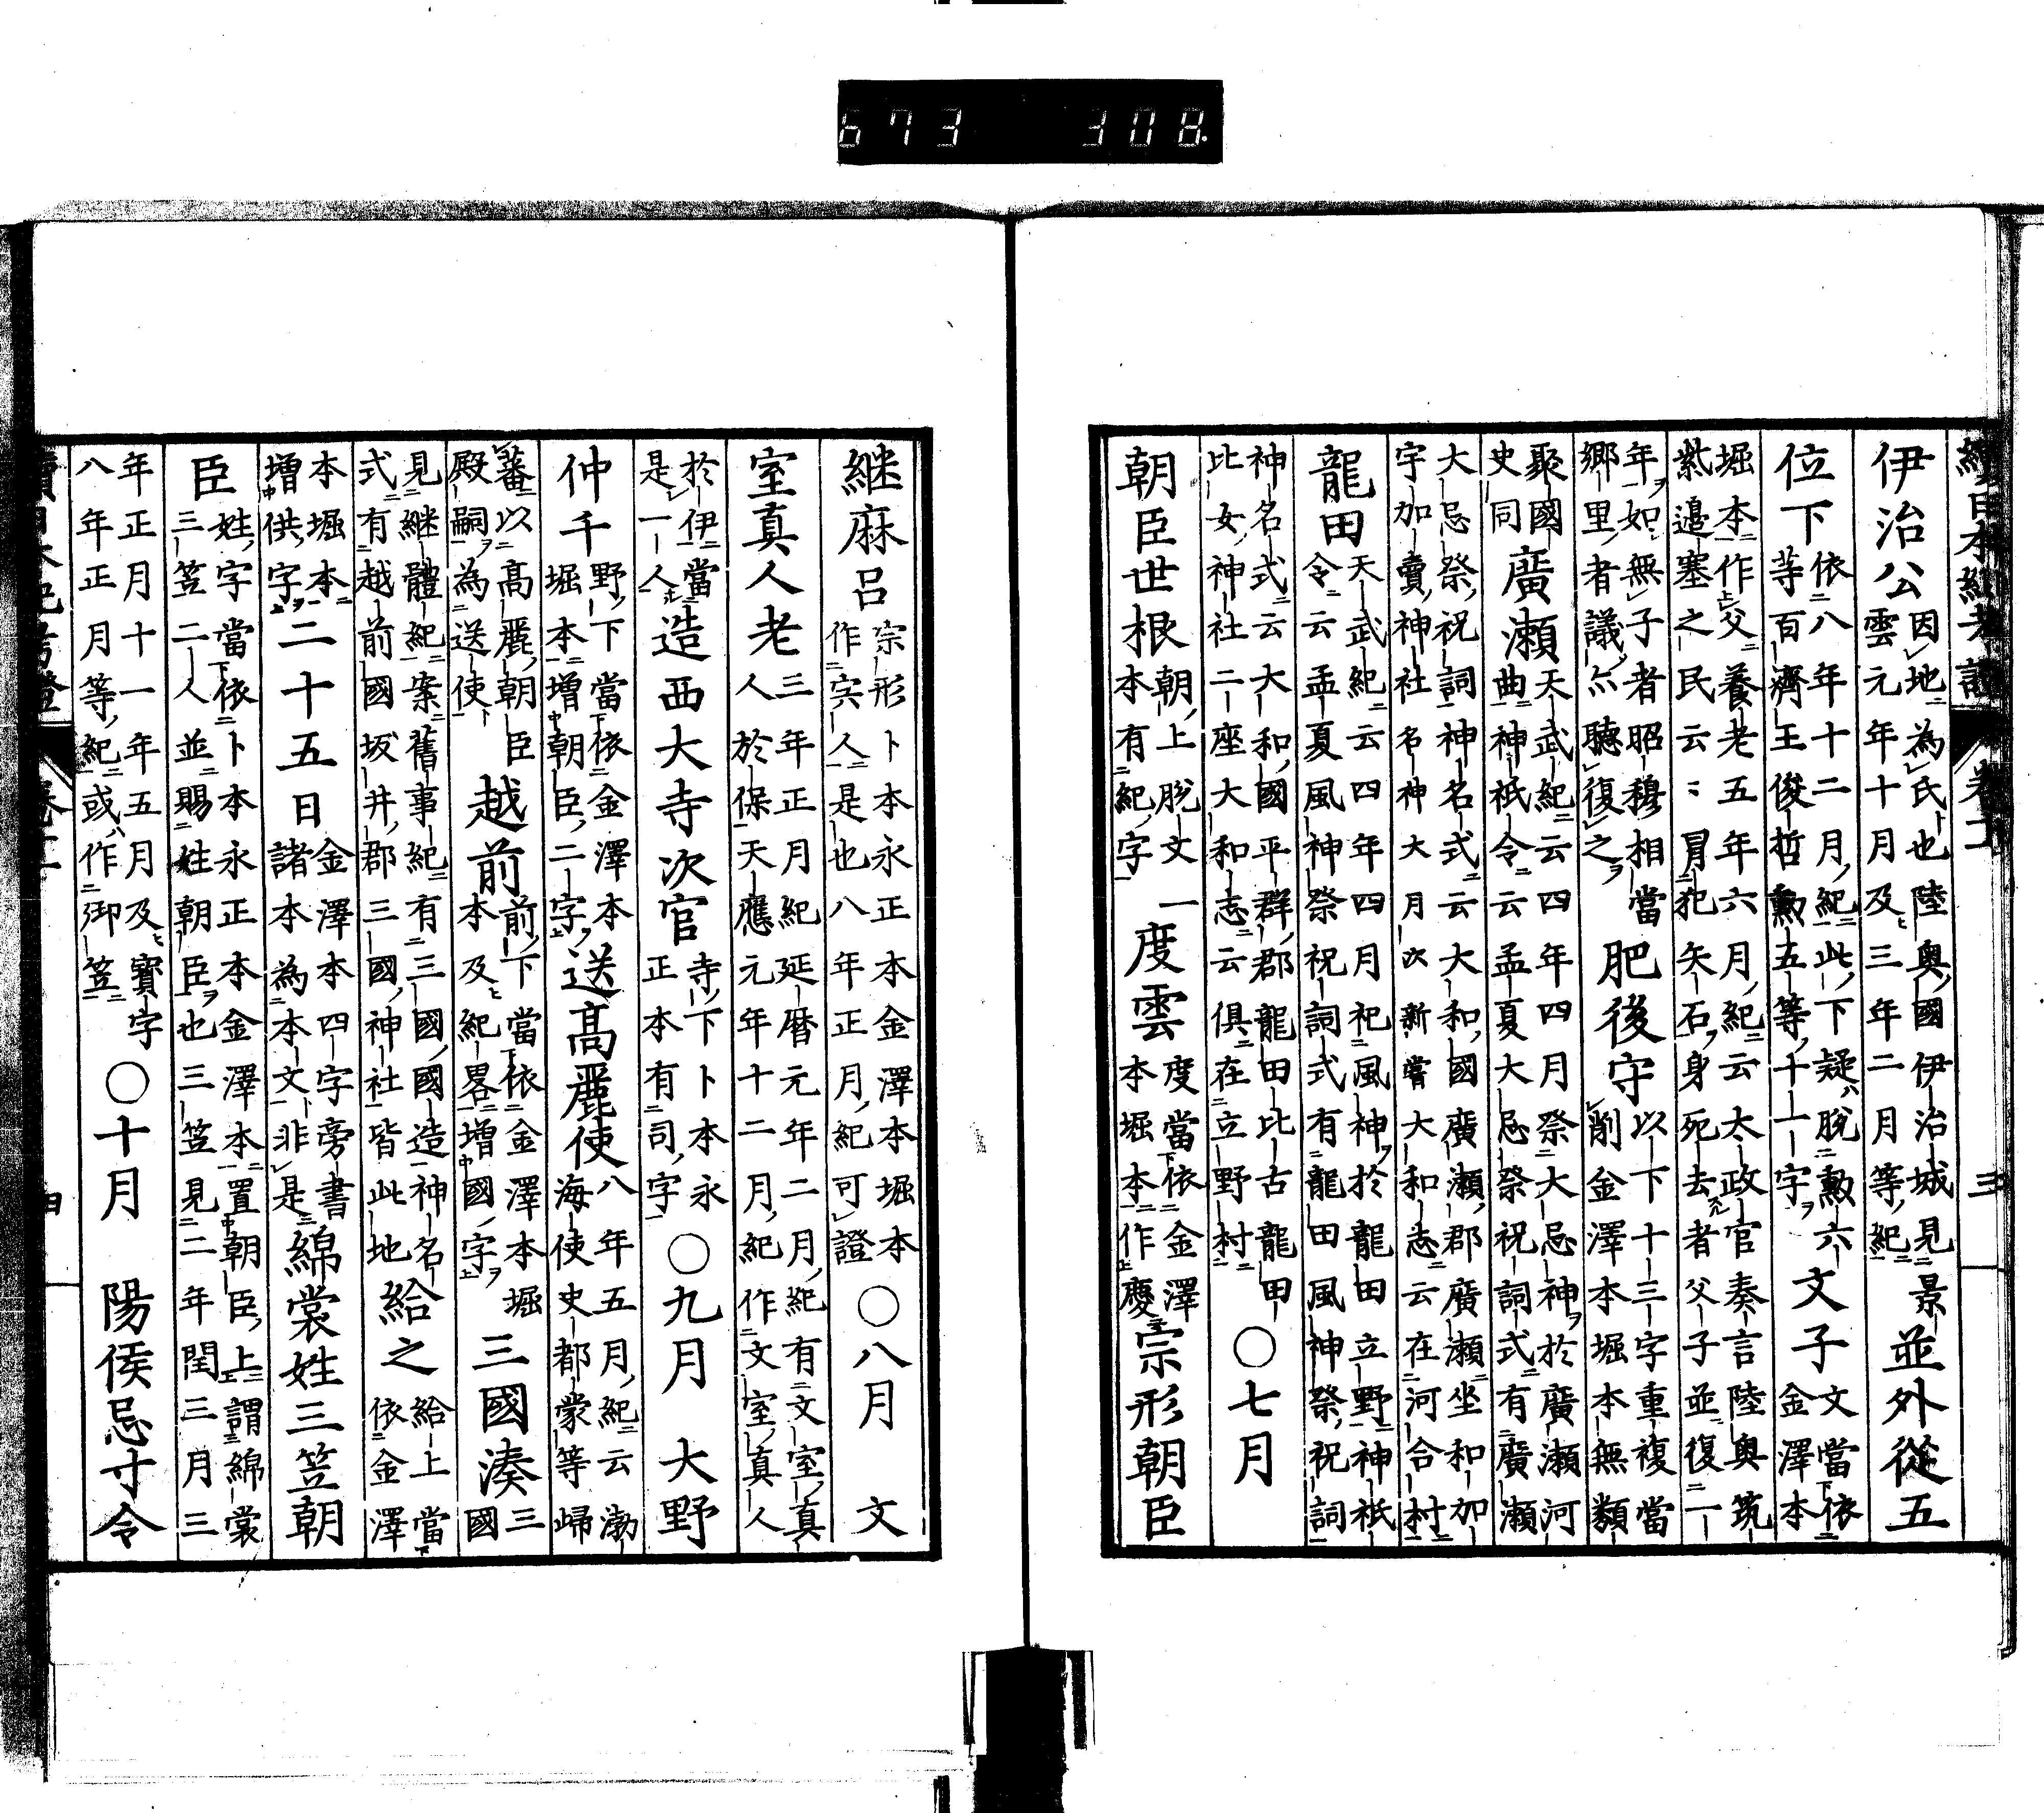 續日本紀考證 卷十一 三
伊治公因地為氏也陸奥國伊治城見景雲元年十月及三年二月等紀並外從五
位下依八年十二月紀此下疑脱勲六等百濟王俊哲勲五等十一字文子文當依金澤本
堀本作父養老五年六月紀云太政官奏言陸奥筑紫邊塞之民云〻冒犯矢石身死去者父子並復一
年如無子者昭穆相當郷里者議亦聽復之肥後守以下十三字重複當削金澤本堀本無類
聚國史同廣瀬天武紀云四年四月祭大忌神於廣瀬河曲神祇令云孟夏大忌祭祝詞式有廣瀬
大忌祭祝詞神名式云大和國廣瀬郡廣瀬坐和加宇加賣神社名神大月次新嘗大和志云在河合村
龍田天武紀云四年四月祀風神於龍田立野神祇令云孟夏風神祭祝詞式有龍田風神祭祝詞
神名式云大和國平群郡龍田比古龍田比女神社二座大和志云倶在立野村○七月
朝臣世根朝上脱文一本有紀字度雲度當依金澤本堀本作慶宗形朝臣
継麻呂宗形卜本永正本金澤本堀本作宍人是也八年正月紀可證○八月 文
室真人老三年正月紀延暦元年二月紀有文室真人於保天應元年十二月紀作文室真人
於伊當是一人造西大寺次官寺下卜本永正本有司字○九月 大野
仲千野下當依金澤本堀本増朝臣二字送髙麗使八年五月紀云渤海使史都蒙等歸
蕃以髙麗朝臣殿嗣為送使越前前下當依金澤本堀本及紀畧増國字三國湊三國
見継體紀案舊事紀有三國國造神名式有越前國坂井郡三國神社皆此地給之給上當依金澤
本堀本増供字二十五日金澤本四字旁書諸本為本文非是綿裳姓三笠朝
臣姓字當依卜本永正本金澤本置朝臣上謂綿裳三笠二人並賜姓朝臣也三笠見二年閏三月三
年正月十一年五月及寳字八年正月等紀或作御笠○十月 陽侯忌寸令